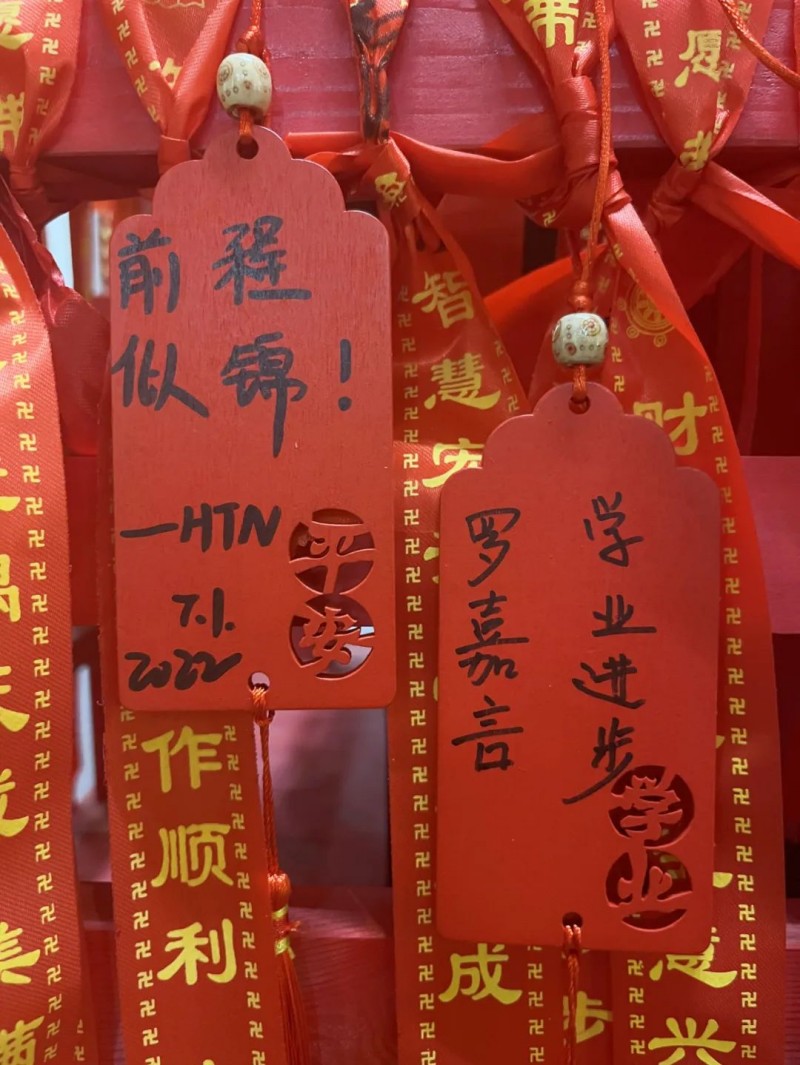 前程
似锦！
—HTN
7.1.
2022
平安
学业进步
罗嘉言
学业
智慧
财
作顺利
成
步
意兴
愿
带